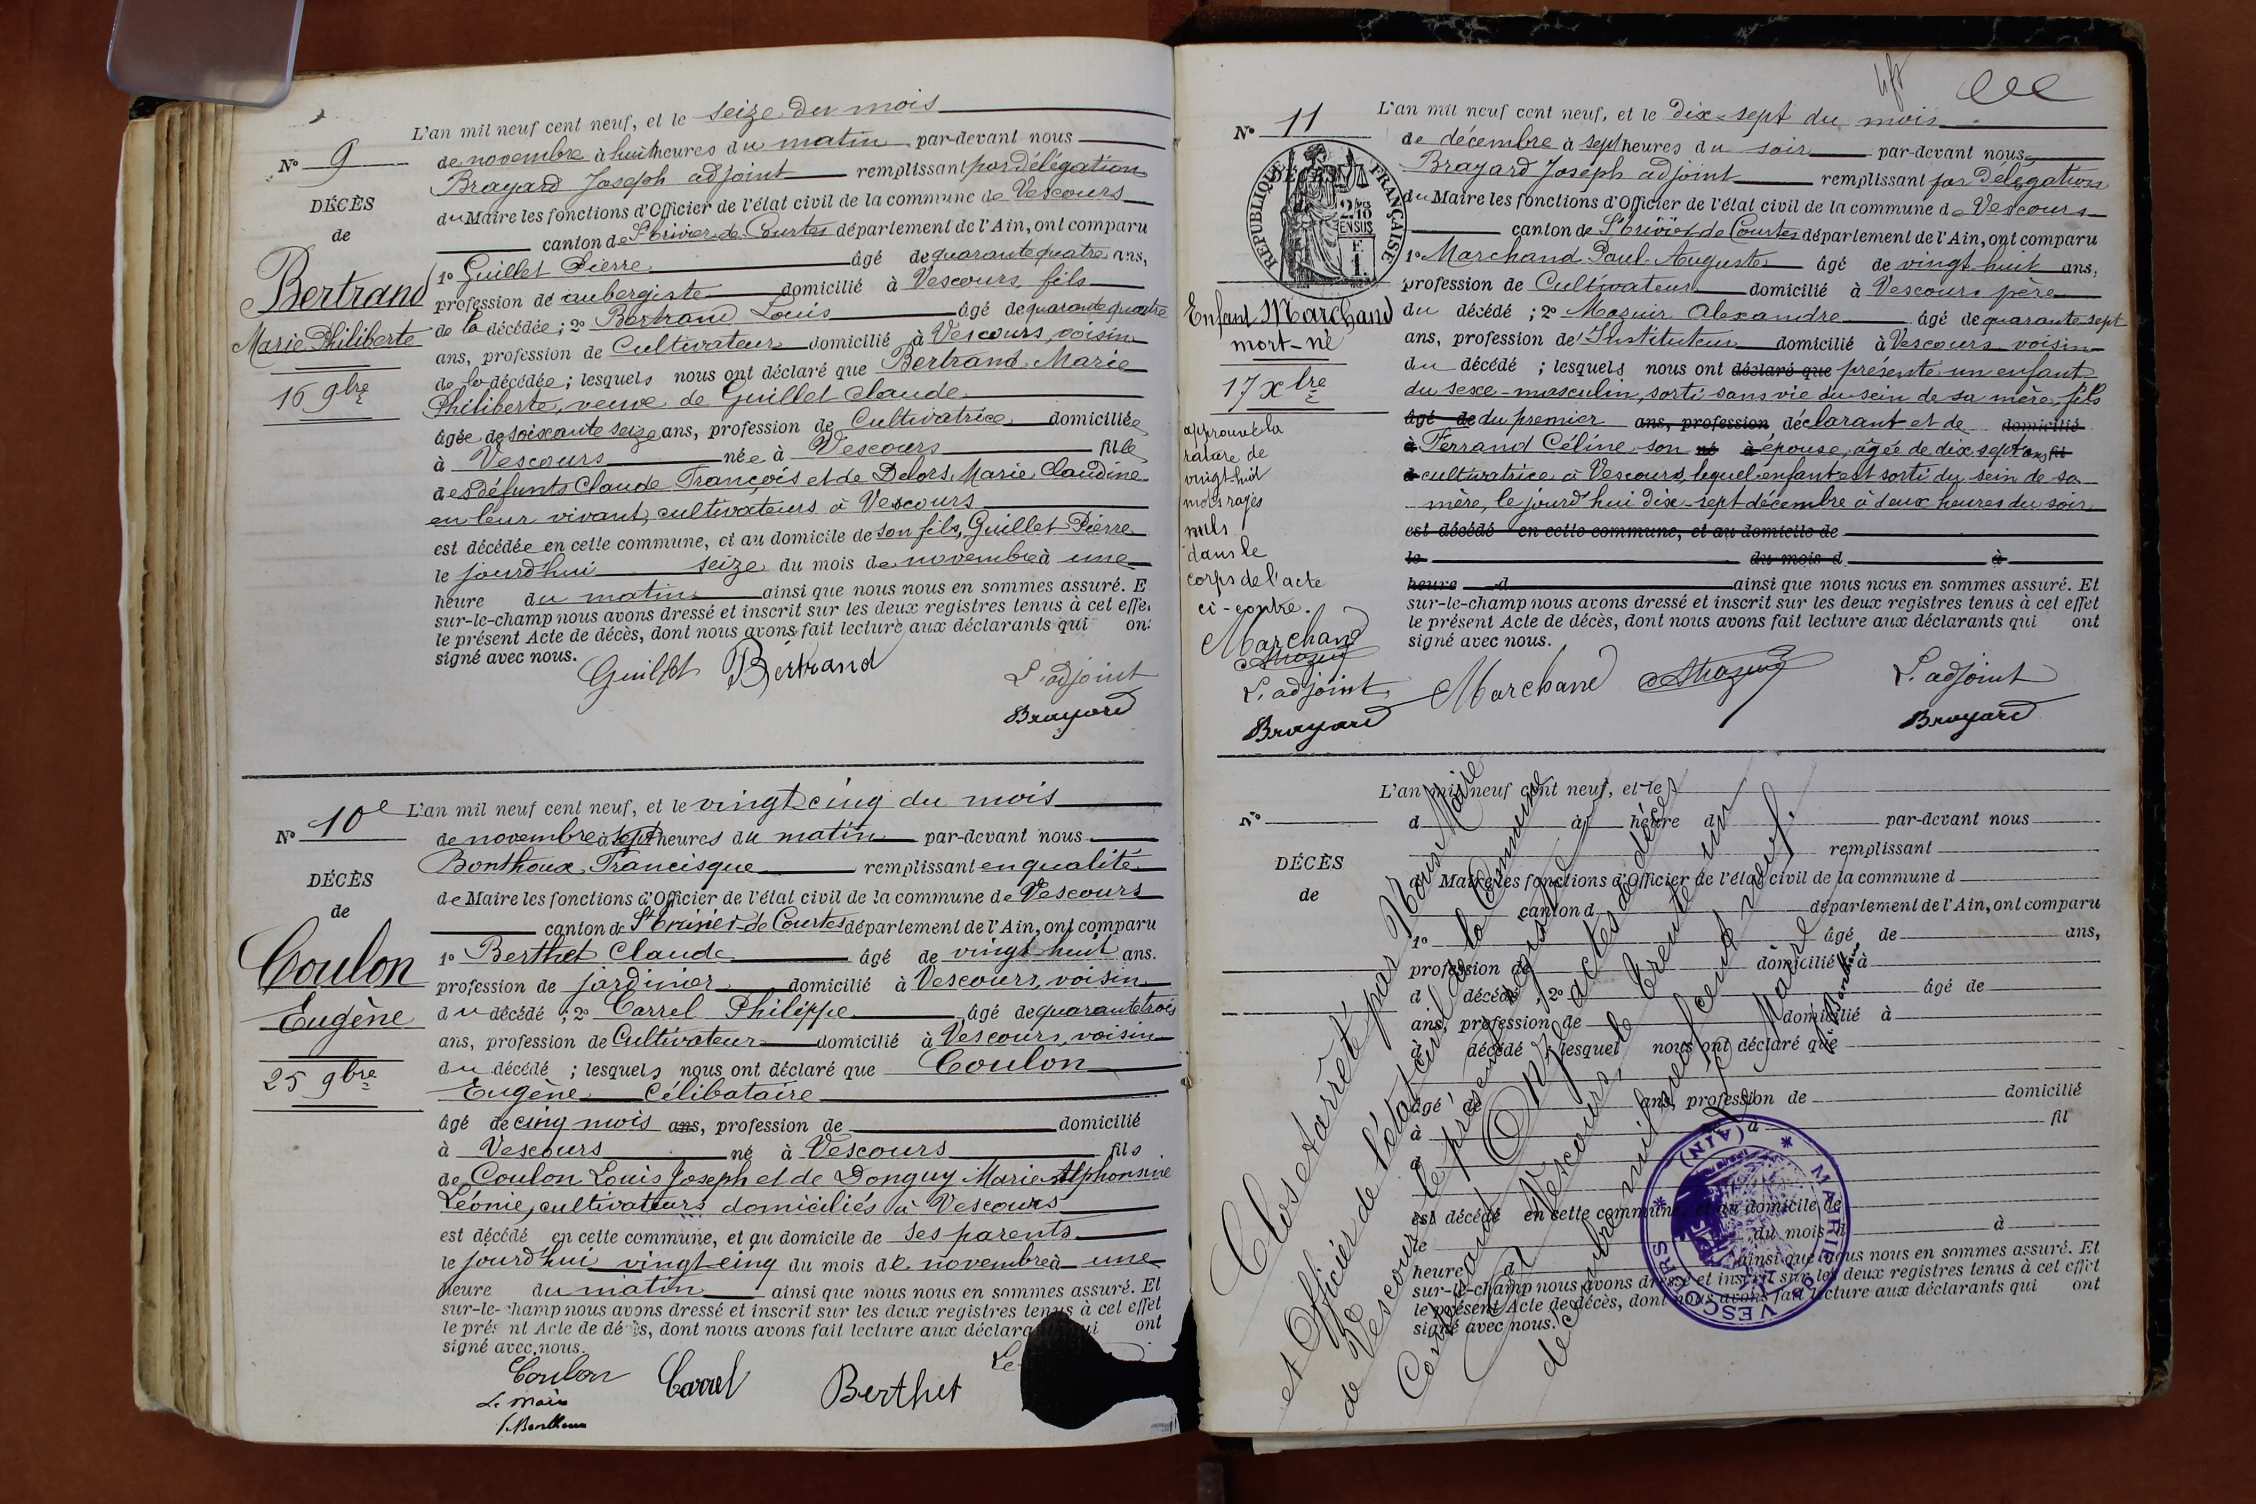 L'an mil neuf cent neuf, et le seize du mois
N° 9
de novembre à huit heures du matin par-devant nous
Brayard Joseph adjoint remplissant par délégation
DÉCÈS
du Maire les fonctions d'Officier de l'état civil de la commune de Vescours
de
canton de St Trivier de Courtes département de l'Ain, ont comparu
Bertrand
Marie Philiberte
16 9bre
1° Guillet Pierre âgé de quarante quatre ans,
profession de aubergiste domicilié à Vescours, fils
de la décédée ; 2° Bertrand Louis âgé de quarante quatre
ans, profession de Cultivateur domicilié à Vescours, voisin
de la décédée ; lesquels nous ont déclaré que Bertrand Marie
Philiberte, veuve de Guillet Claude
âgée de soixante seize ans, profession de Cultivatrice domiciliée
à Vescours née à Vescours fille
des défunts Claude François et de Delors Marie Claudine
en leur vivant, cultivateurs à Vescours
est décédée en cette commune, et au domicile de son fils, Guillet Pierre
le jourd'hui seize du mois de novembre à une
heure du matin ainsi que nous nous en sommes assuré. E
sur-le-champ nous avons dressé et inscrit sur les deux registres tenus à cet effe
le présent Acte de décès, dont nous avons fait lecture aux déclarants qui on
signé avec nous.
Guillet Bertrand L'adjoint
Brayard
L'an mil neuf cent neuf, et le vingt cinq du mois
N° 10e
de novembre à sept heures du matin par-devant nous
Bonthoux Francisque remplissant en qualité
DÉCÈS
de Maire les fonctions d'Officier de l'état civil de la commune de Vescours
de
canton de St Trivier de Courtes département de l'Ain, ont comparu
Coulon
Eugène
25 9bre
1° Berthet Claude âgé de vingt huit ans.
profession de jardinier domicilié à Vescours, voisin
du décédé ; 2° Carrel Philippe âgé de quarante trois
ans, profession de Cultivateur domicilié à Vescours, voisin
du décédé ; lesquels nous ont déclaré que Coulon
Eugène Célibataire
âgé de cinq mois ans, profession de domicilié
à Vescours né à Vescours fils
de Coulon Louis Joseph et de Donguy Marie Alphonsine
Léonie, cultivateurs domiciliés à Vescours
est décédé en cette commune, et au domicile de ses parents
le jourd'hui vingt cinq du mois de novembre à une
heure du matin ainsi que nous nous en sommes assuré. Et
sur-le-champ nous avons dressé et inscrit sur les deux registres tenus à cet effet
le présent Acte de décès, dont nous avons fait lecture aux déclara qui ont
signé avec nous.
Coulon Carrel Berthet Le
Le Maire
f. Bonthoux
L'an mil neuf cent neuf, et le dix-sept du mois
N° 11
de décembre à sept heures du soir par-devant nous
Brayard Joseph adjoint remplissant par délégation
REPUBLIQUE FRANÇAISE
du Maire les fonctions d'Officier de l'état civil de la commune de Vescours
canton de St Trivier de Courtes département de l'Ain, ont comparu
1° Marchand Paul Auguste âgé de vingt huit ans,
profession de Cultivateur domicilié à Vescours père
Enfant Marchand
mort-né
17 xbre
du décédé ; 2° Mazuir Alexandre âgé de quarante sept
ans, profession de Instituteur domicilié à Vescours voisin
du décédé ; lesquels nous ont déclaré que présenté un enfant
du sexe masculin, sorti sans vie du sein de sa mère, fils
âgé de du premier ans, profession déclarant et de domicilié
à Ferrand Céline son né à épouse, âgée de dix sept ans fil
d cultivatrice à Vescours, lequel enfant est sorti du sein de sa
mère, le jourd'hui dix-sept décembre à deux heures du soir
est décédé en cette commune, et au domicile de
le du mois d à
heure d ainsi que nous nous en sommes assuré. Et
sur-le-champ nous avons dressé et inscrit sur les deux registres tenus à cet effet
le présent Acte de décès, dont nous avons fait lecture aux déclarants qui ont
signé avec nous.
approuvé la
rature de
vingt-huit
mots rayés
nuls
dans le
corps de l'acte
ci-contre.
Marchand
AMazuir
L'adjoint
Brayard
Marchand AMazuir L'adjoint
Brayard
L'an mil neuf cent neuf, et le
N°
d à heure d par-devant nous
remplissant
DÉCÈS
d Maire les fonctions d'Officier de l'état civil de la commune d
de
canton d département de l'Ain, ont comparu
1° âgé de ans,
profession de domicilié à
d décédé ; 2° âgé de
ans, profession de domicilié à
d décédé ; lesquel nous ont déclaré que
âgé de ans, profession de domicilié
à né à fil
d
est décédé en cette commune, et au domicile de
le du mois d à
heure d ainsi que nous nous en sommes assuré. Et
sur-le-champ nous avons dressé et inscrit sur les deux registres tenus à cet effet
le présent Acte de décès, dont nous avons fait lecture aux déclarants qui ont
signé avec nous.
Clos et arrêté par Nous Maire
et Officier de l'état civil de la Commune
de Vescours le présent registre
Contenant Onze actes de décès
A Vescours, le trente un
décembre mil neuf cent neuf.
Le Maire
f. Bonthoux
MAIRIE DE VESCOURS (AIN)